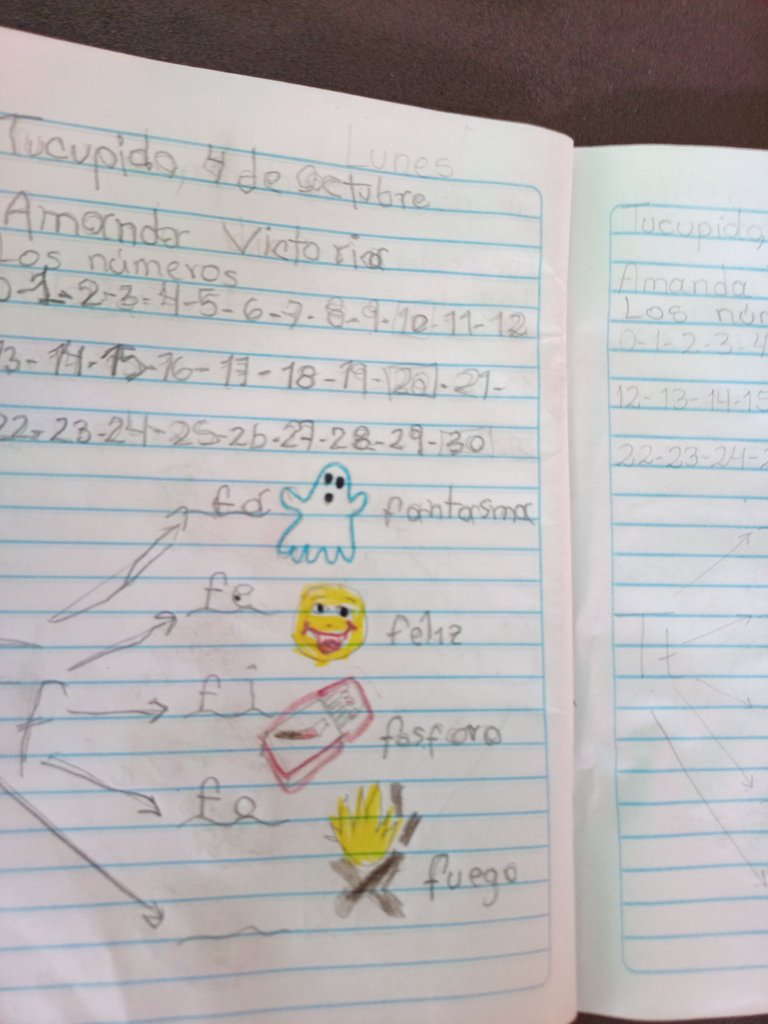 Lunes
Tucupido, 4 de Octubre
Amanda Victoria
Los números
0-1-2-3-4-5-6-7-8-9-10-11-12
13-14-15-16-17-18-19-20-21-
22-23-24-25-26-27-28-29-30
fa fantasma
fe feliz
f
fi fosforo
fo
fuego
Tucupido,
Amanda
Los núm
0-1-2-3-4
12-13-14-15
22-23-24-2
T t